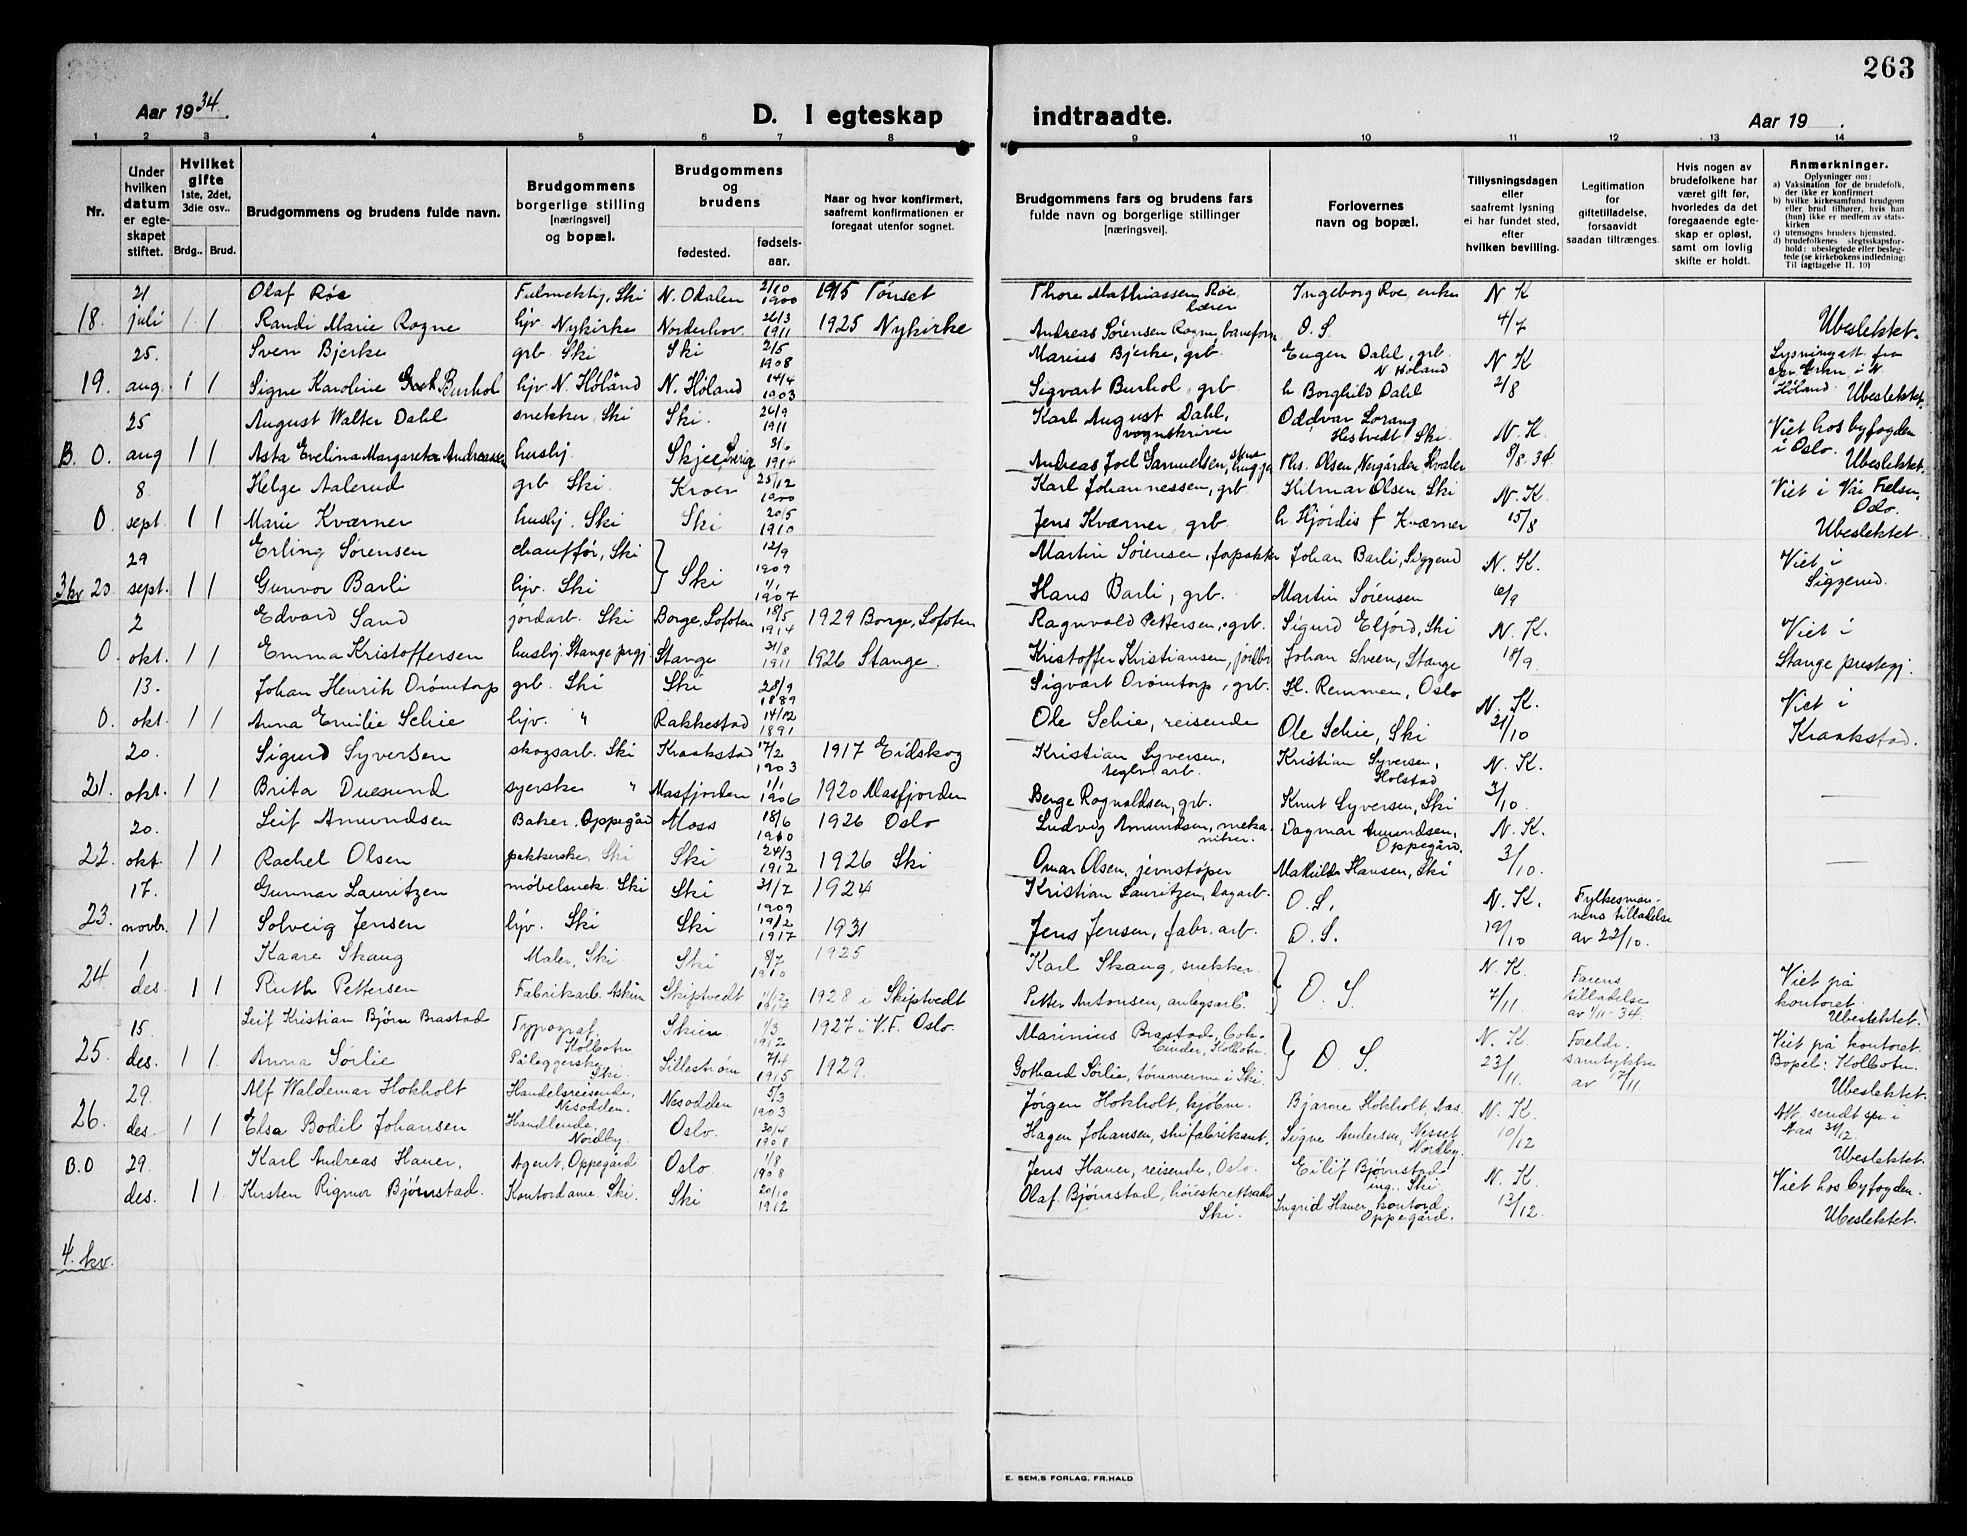 263
Aar 1934.
D. I egteskap indtraadte.
Aar 19 .
1 2 3 4 5 6 7 8 9 10 11 12 13 14
Nr.
Under hvilken datum er egteskapet stiftet.
Hvilket gifte 1ste, 2det, 3die osv..
Brdg.. Brud.
Brudgommens og brudens fulde navn.
Brudgommens borgerlige stilling [næringsvei] og bopæl.
Brudgommens og brudens
fødested. fødsels-aar.
Naar og hvor konfirmert, saafremt konfirmationen er foregaat utenfor sognet.
Brudgommens fars og brudens fars fulde navn og borgerlige stillinger [næringsvei].
Forlovernes navn og bopæl.
Tillysningsdagen eller saafremt lysning ei har fundet sted, efter hvilken bevilling.
Legitimation for giftetilladelse, forsaavidt saadan tiltrænges.
Hvis nogen av brudefolkene har været gift før, hvorledes da det foregaaende egteskap er opløst, samt om lovlig skifte er holdt.
Anmerkninger.
Oplysninger om:
a) Vaksination for de brudefolk, der ikke er konfirmert
b) hvilke kirkesamfund brudgom eller brud tilhører, hvis han (hun) ikke er medlem av statskirken
c) utensogns bruders hjemsted.
d) brudefolkenes slegtsskapsforhold: ubeslegtede eller beslegtede (se kirkebokens indledning: Til iagttagelse II. 10)
21 Olaf Röe Fulmektig, Ski N. Odalen 2/10 1900 1915 Tönset Thore Mathiassen Röe, lærer Ingeborg Roe, enke N K
18. juli 1 1 Randi Marie Rogne hjv Nykirke Norderhov 26/3 1911 1925 Nykirke Andreas Sörensen Rogne, baneform O. S. 4/7 Ubeslektet.
25. Sven Bjerke grb. Ski Ski 2/5 1908 Marius Bjerke, grb. Eugen Dahl, grb. N Höland N K Lysningatt. fra
19. aug. 1 1 Signe Karoline Burhol hjv N. Höland N. Höland 14/4 1903 Sigvart Burhol, grb h Borghild Dahl 2/8 Höland. Ubeslektet.
25 August Walter Dahl snekker, Ski Ski. 26/9 1911 Karl August Dahl, vognskriver Oddvar Lorang Hestvedt Ski N. K. Viet hos byfogden
B. O. aug 1 1 Asta Evelina Margareta Andreassen husbj. Skjee 1914 Andreas Joel Samuelsen, Ths. Olsen, Nergården Hvaler 8/8-34 i Oslo. Ubeslektet.
8 Helge Aalerud grb. Ski. Kroer 25/12 1900 Karl Johannessen, grb Hilmar Olsen, Ski N. K. Viet i Vår Frelser, Oslo.
O sept. 1 1 Marie Kværner husbj. Ski Ski 20/5 1910 Jens Kværner, grb h Hjördis f Kværner 15/8 Ubeslektet
29 Erling Sörensen chauffør, Ski } Ski 12/9 1909 Martin Sörensen, forpakter Johan Barli, Siggerud N. K. Viet i
3kv 20 sept. 1 1 Gunvor Barli hjv. Ski 1/1 1907 Hans Barli, grb. Martin Sörensen 6/9 Siggerud.
2 Edvard Sand jordarb. Ski Borge, Lofoten 18/5 1914 1929 Borge, Lofoten Ragnvald Pettersen, grb. Sigurd Eljord, Ski N. K. Viet i
O. okt. 1 1 Emma Kristoffersen husbj. Stange prgj Stange 31/8 1911 1926 Stange. Kristoffer Kristiansen, jordbr Johan Sveen, Stange 18/9. Stange prestegj.
13. Johan Henrik Drömtorp grb. Ski Ski 28/9 1889 Sigvart Drömtorp, grb. H. Remmen, Oslo N. K. Viet i
O. okt. 1 1 Anna Emilie Schie hjv. " Rakkestad 14/12 1891 Ole Schie, reisende Ole Schie, Ski /10 Kraakstad.
20. Sigurd Syversen skogsarb. Ski Kraakstad 17/2 1903 1917 Eidskog Kristian Syversen, teglv. arb. Kristian Syversen, Holstad N. K.
21. okt. 1 1 Brita Duesund syerske " Masfjorden 1/1 1906 1920 Masfjorden Berge Rognaldsen, grb. Knut Syversen, Ski 3/10.
20. Leif Amundsen Baker, Oppegård Moss 18/6 1910 1926 Oslo Ludvig Amundsen, mekaniker. Dagmar Amundsen, Oppegård. N. K.
22. okt. 1 1 Rachel Olsen pakkerske, Ski Ski 24/3 1912 1926 Ski Omar Olsen, jernstöper Mathilde Hansen, Ski 3/10.
17. Gunnar Lauritzen möbelsnek. Ski Ski 31/7 1909 1924 Kristian Lauritzen, dagarb. O. S. N. K. Fylkesmannens tilladelse
23. novbr. 1 1 Solveig Jensen hjv. Ski Ski 19/2 1917 1931 Jens Jensen, fabr. arb. O. S. 19/10 av 22/10.
1 Kaare Skaug Maler, Ski Ski 8/7 1910 1925 Karl Skaug, snekker. } O. S. N. K. Farens tilladelse Viet på
24. des. 1 1 Ruth Pettersen Fabrikarb. Askim Skiptvedt 1928 i Skiptvedt Petter Antonsen, anlegsarb. 7/11. av 1/11-34. kontoret. Ubeslektet.
15. Leif Kristian Björn Brastad Typograf, Kolbotn Skien 1/3 1912 1927 i V.F. Oslo. Marinius Brastad, Kolbotn. } O. S. N. K. Foreldr. samtykke Viet på kontoret.
25. des. 1 1 Anna Sörlie Påleggerske, Ski. Lilleström 7/4 1915 1929. Gothard Sörlie, tömmerm. i Ski. 23/11. av 17/11 Bopel: Kolbotn. Ubeslektet.
29. Alf Waldemar Hokholt Handelsreisende, Nesodden. Nesodden 5/3 1903 Jörgen Hokholt, kjöbm. Bjarne Hokholt, Aas N. K. Att. sendt spr. i
26. des. 1 1 Elsa Bodil Johansen Handlende, Nordby. Oslo. 30/4 1908 Hagen Johansen, skifabrikant. Signe Andersen, Nesset Nordby. 10/12 Aas 31/12. Ubeslektet.
B.O 29. Karl Andreas Hauer, Agent, Oppegård Oslo 1/8 1908 Jens Hauer, reisende, Oslo. Eilif Björnstad, ing. Ski. N. K. Viet hos byfogden.
des. 1 1 Kirsten Rigmor Björnstad. Kontordame, Ski. Ski 20/10 1912 Olaf Björnstad, höiesterettsadv. Ski. Ingrid Hauer, kontord. Oppegård. 13/12. Ubeslektet.
4. kv.
E. SEM,S FORLAG, FR.HALD